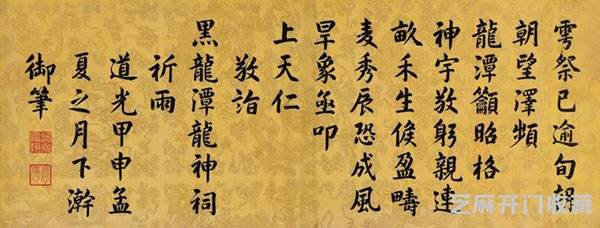 雩祭已逾旬朝
朝望澤頻
龍潭籲昭格
神宇敬躬親連
畝禾生候盈疇
麦秀辰恐成風
旱象亟叩
上天仁
敬詣
黑龍潭龍神祠
祈雨
道光甲申孟
夏之月下澣
御筆
芝麻开门收藏